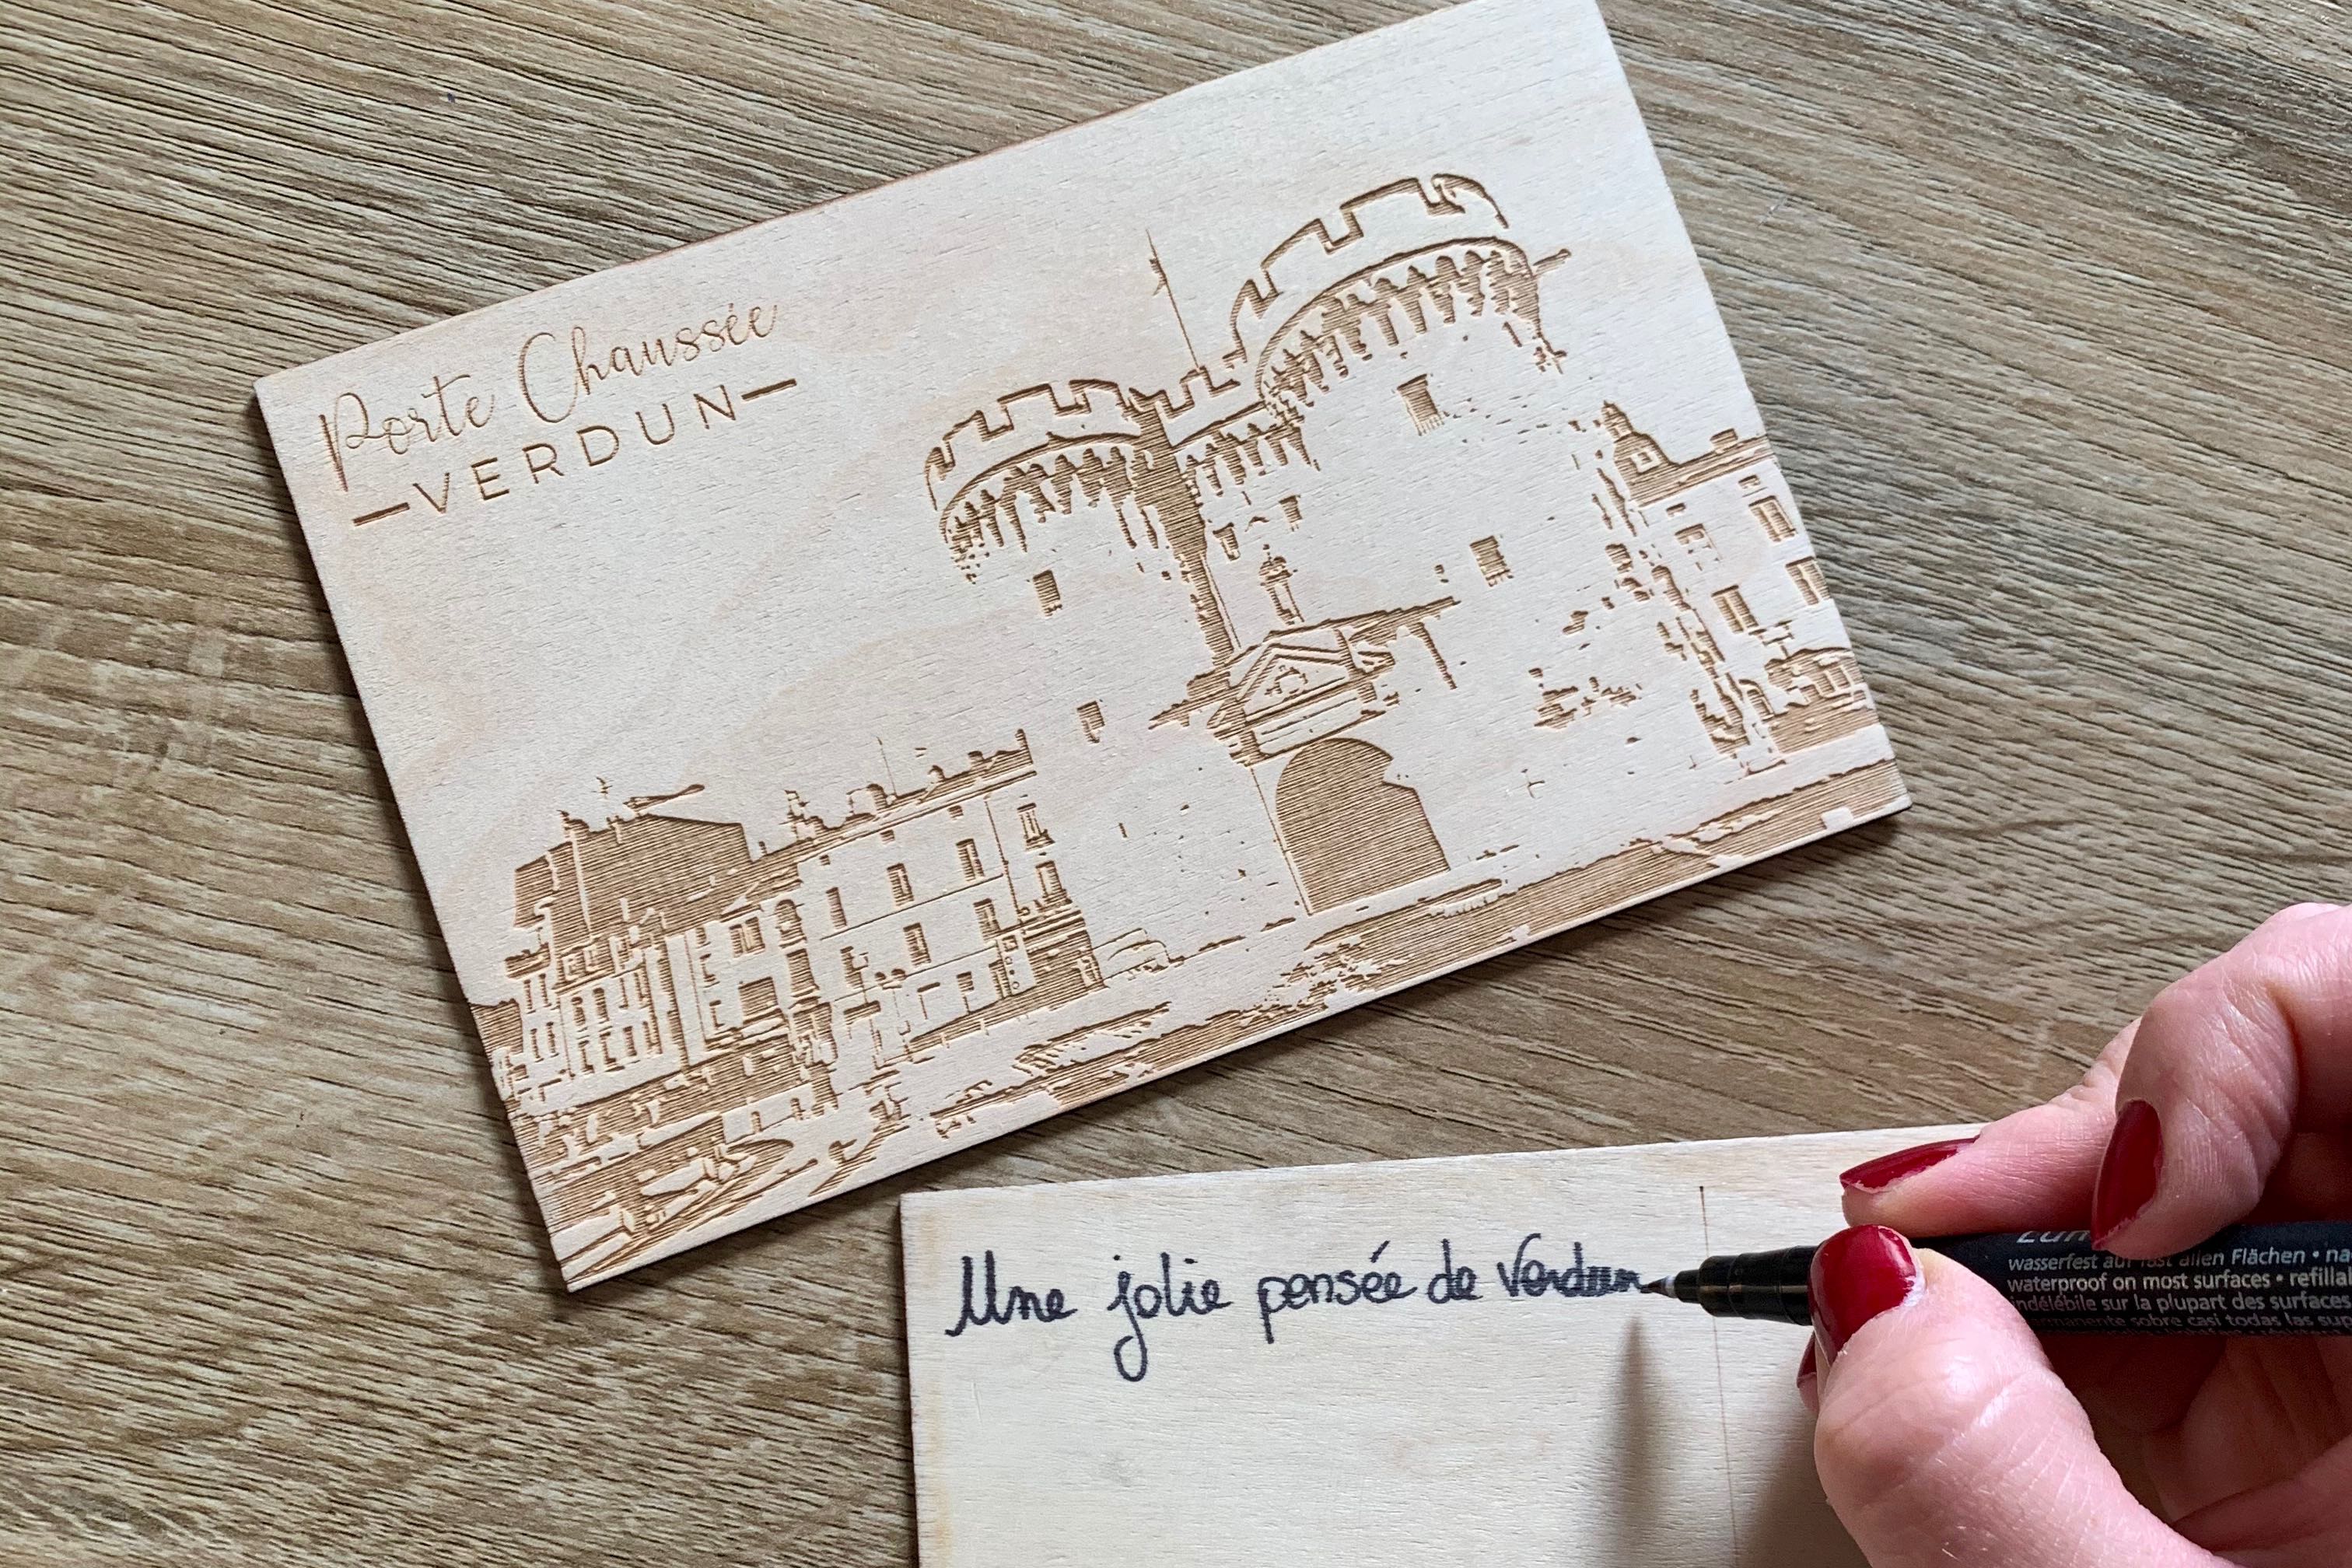 Porte Chaussée
—VERDUN—
Une jolie pensée de Verdun
wasserfest auf fast allen Flächen • na
waterproof on most surfaces • refilla
indélébile sur la plupart des surfaces
permanente sobre casi todas las sup